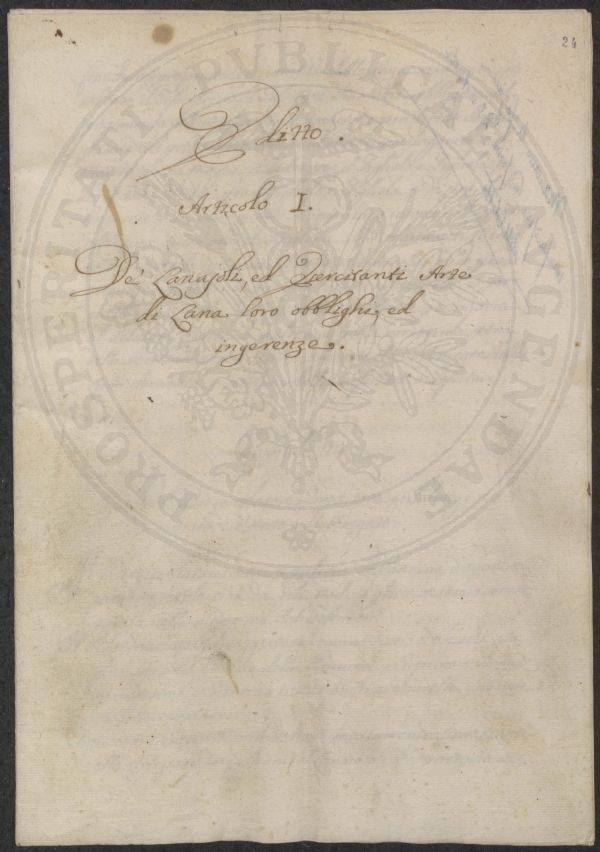 24
Editto.
Articolo I.
De' Lanajoli, ed Esercitanti Arte
di Lana loro obblighi, ed
ingerenze.
PROSPERITATI PUBLICAE AUGENDAE